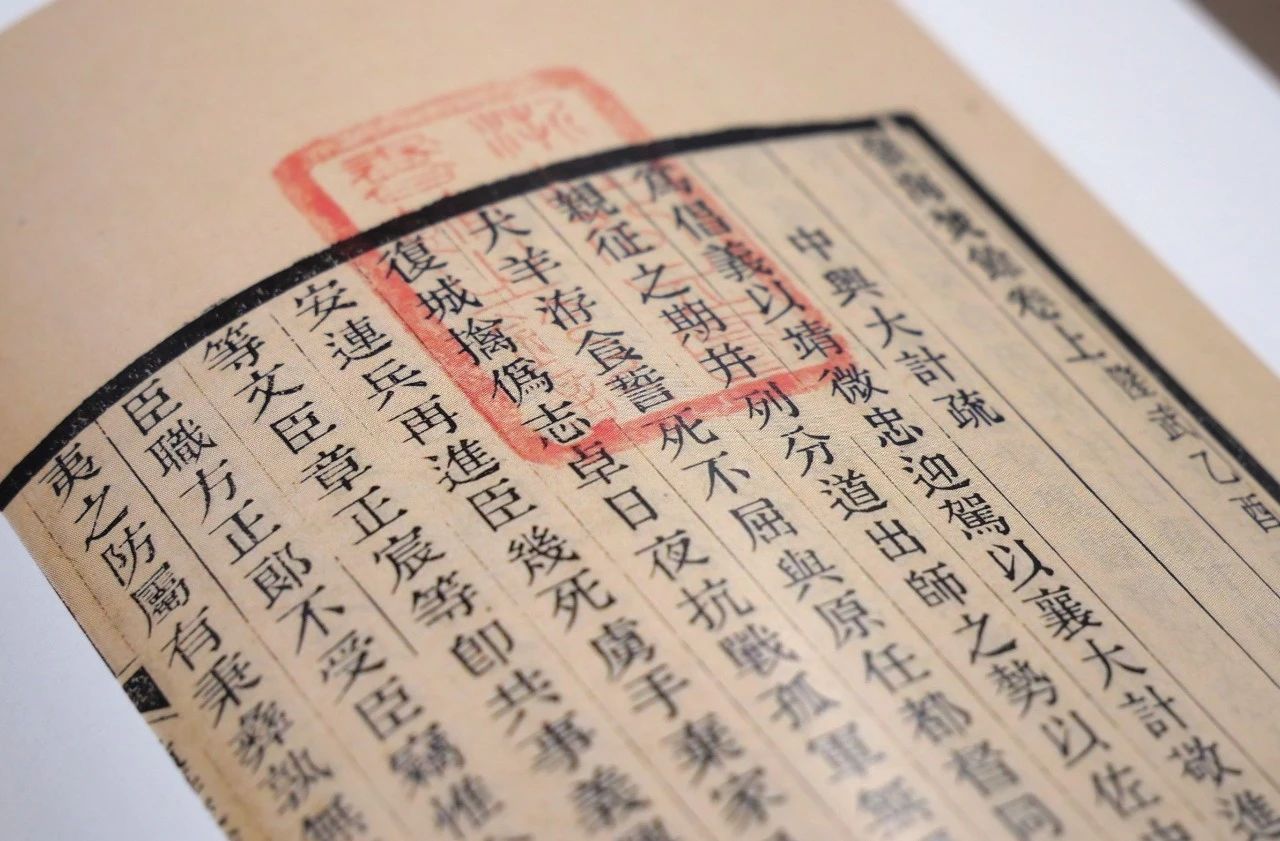 南 卷上 隆武乙酉
中興大計疏
爲倡義以靖微忠迎駕以襄大計敬進
親征之期幷列分道出師之勢以佐中
犬羊游食誓死不屈與原任都督同
復城擒僞志卓日夜抗戰孤軍無
安連兵再進臣幾死虜手棄家
等文臣章正宸等卽共事義
臣職方正郞不受臣竊惟
夷之防屬有秉彝孰無